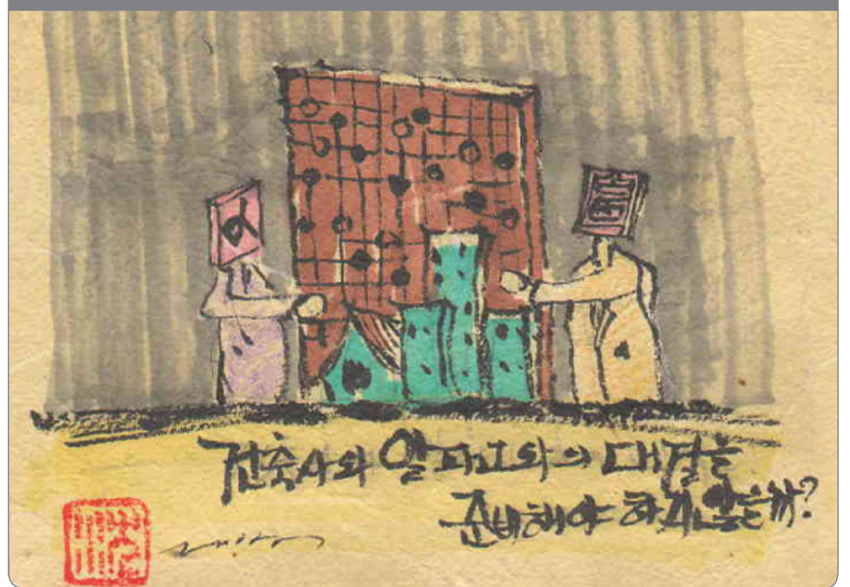 α
건축사와 알파고와의 대결을
준비해야 하지 않을까?